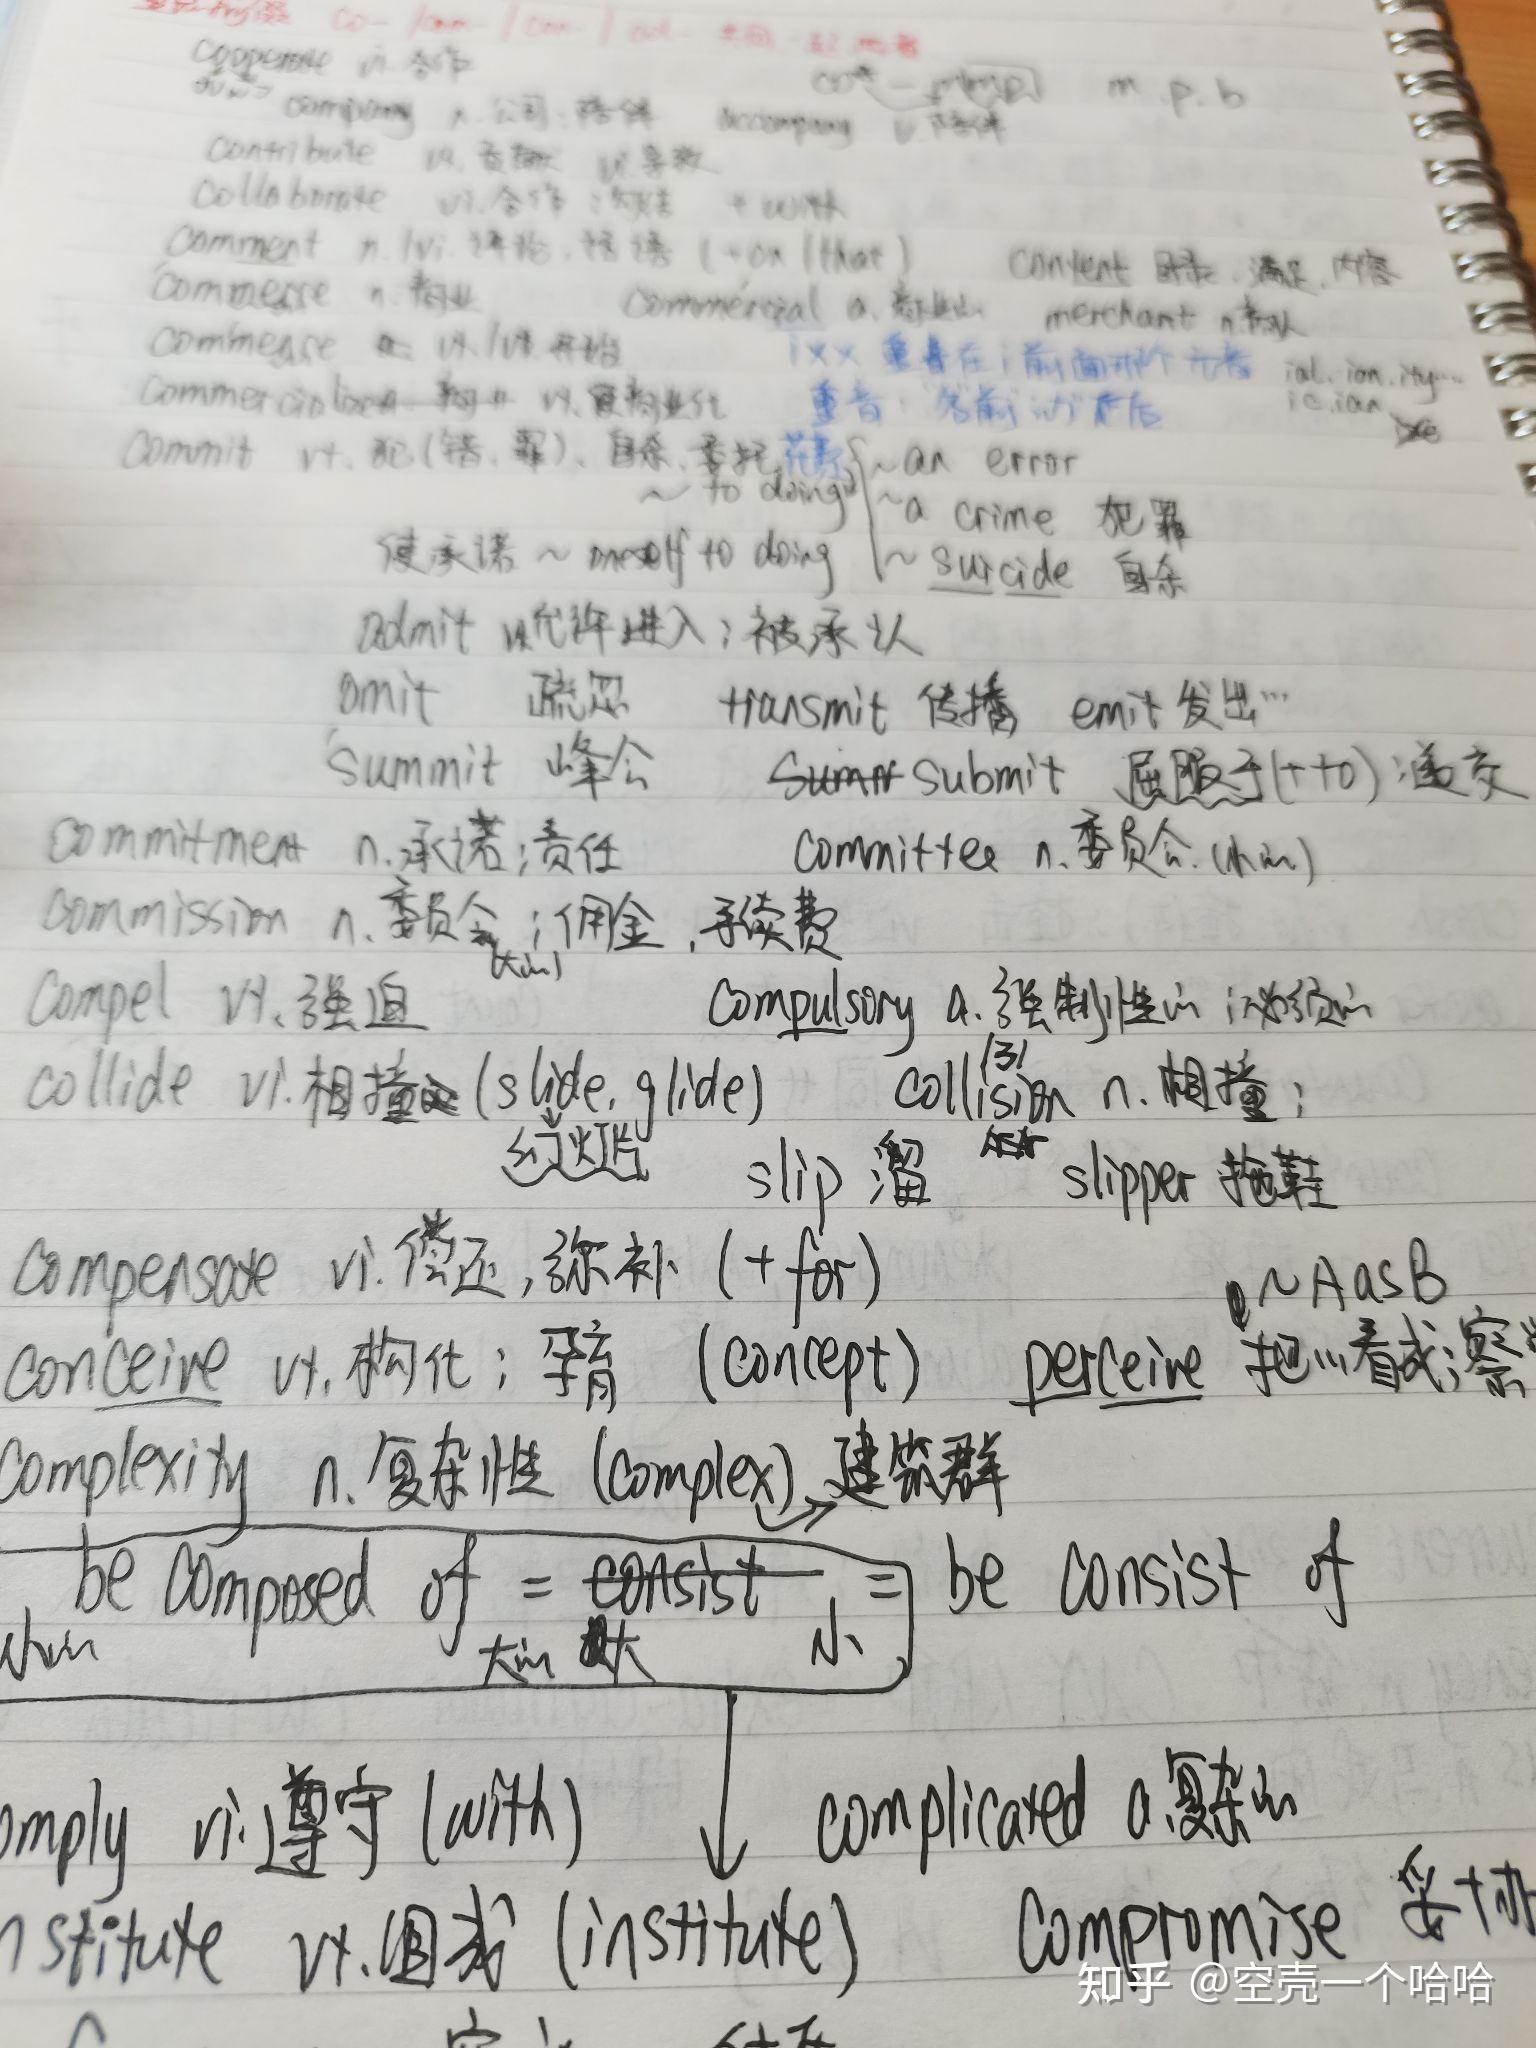 co- / com- / con- / col- 共同,一起,两者
cooperate vi.合作
m.p.b
company n.公司;陪伴 accompany v.陪伴
contribute vt.贡献 vi.导致
collaborate vi.合作;勾结 +with
comment n./vi.评论,评语 (+on/that) content 目录,满足,内容
commerce n.商业 commercial a.商业的 merchant n.商人
commerse vt./vi.开始 ixx 重音在i前面那个元音 ial.ion.ity...
ic.ian
commercialize vt.使商业化 重音:"名前""动"在后
commit vt.犯(错、罪)、自杀、委托,花费 ~an error
~to doing ~a crime 犯罪
使承诺~oneself to doing ~suicide 自杀
admit vt.允许进入;被承认
omit 疏忽 transmit 传播 emit 发出…
summit 峰会 submit 屈服于(+to);递交
commitment n.承诺;责任 committee n.委员会.(小的)
commission n.委员会;佣金,手续费
(大的)
compel vt.强迫 compulsory a.强制性的;必须的
collide vi.相撞 (slide,glide) collision n.相撞;
幻灯片 slip 溜 slipper 拖鞋
compensate vi.偿还,弥补 (+for)
~A as B
conceive vt.构化;孕育 (concept) perceive 把…看成;察
complexity n.复杂性 (complex) 建筑群
be composed of = consist = be consist of
大的 大 小
omply vi.遵守(with) complicated a.复杂的
nstitute vt.组成 (institute) compromise 妥协
知乎 @空壳一个哈哈